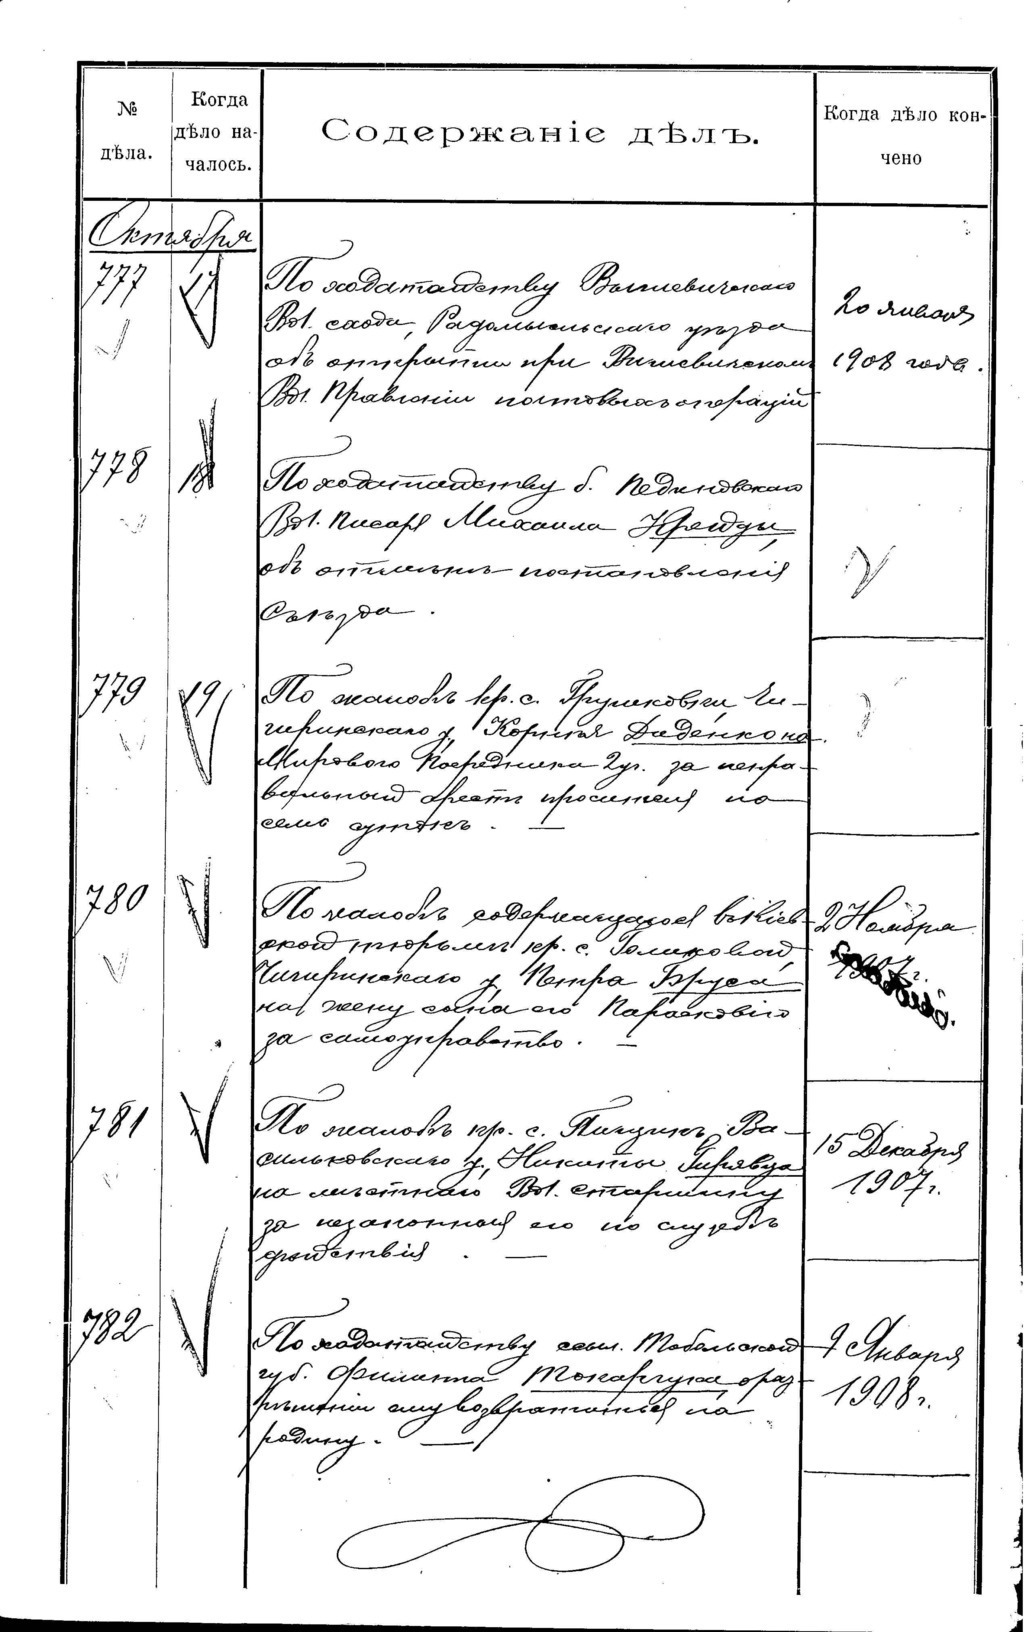 №
дѣла.
Когда
дѣло на-
чалось.
Содержаніе дѣлъ.
Когда дѣло кон-
чено
Октября
777
17
По ходатайству Вышевичскаго
Вол. схода, Радомысльскаго уѣзда
объ открытіи при Вышевичском
Вол. Правленіи почтовыхъ операцій
20 января
1908 года.
778
18
По ходатайству б.
Вол. Писаря Михаила
объ отмѣнѣ постановленія
Съѣзда.
779
19
По жалобѣ кр. с. Грушковки, Чи-
гиринскаго у. Корнѣя Диденко на
Мирового Посредника 2 уч. за непра-
вильный арестъ просителя на
семь сутокъ. —
780
По жалобѣ содержащагося въ Кіев-
ской тюрьмѣ кр. с.
Чигиринскаго у. Петра Бруса
на жену сына его Параскевію
за самоуправство. —
2 Ноября
1907 г.
781
По жалобѣ кр. с. Ва-
сильковскаго у., Никиты
на мѣстнаго Вол. старшину
за незаконныя его по службѣ
дѣйствія. —
15 Декабря
1907 г.
782
По ходатайству ссыл. Тобольской
губ. Филиппа Токарчука о раз-
рѣшеніи ему возвратиться на
родину. —
9 Января
1908 г.